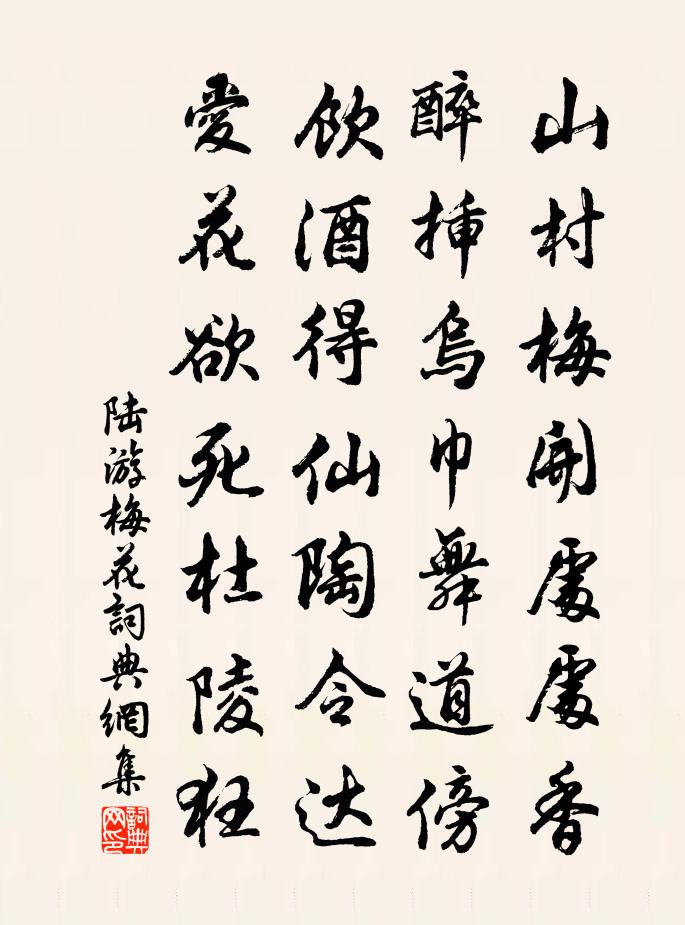 山村梅開處處香
醉插烏巾舞道傍
飲酒得仙陶令达
愛花欲死杜陵狂
陆游梅花詞典網集
詞典网印